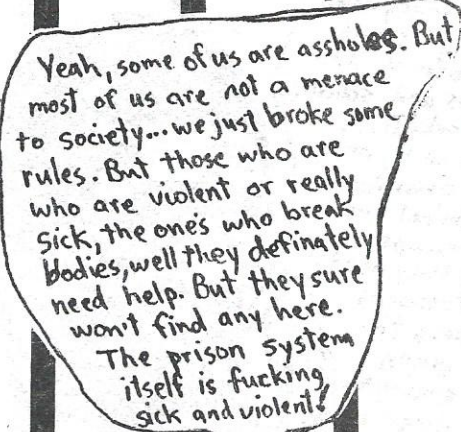 Yeah, some of us are assholes. But
most of us are not a menace
to society... we just broke some
rules. But those who are
who are violent or really
sick, the one's who break
bodies, well they definately
need help. But they sure
won't find any here.
The prison system
itself is fucking
sick and violent!